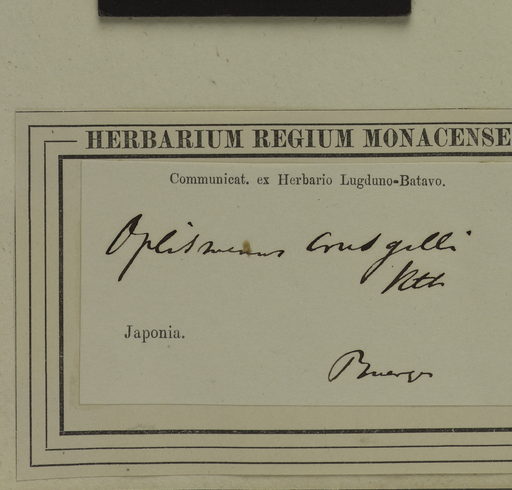 HERBARIUM REGIUM MONACENSE
Communicat. ex Herbario Lugduno-Batavo.
Oplismenus Crus galli
Kth
Japonia.
Buerger